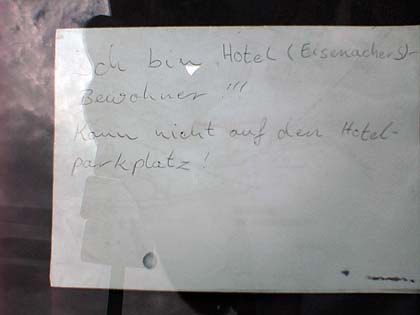 Ich bin Hotel (Eisenacher)-
Bewohner !!!
Kann nicht auf den Hotel-
parkplatz!